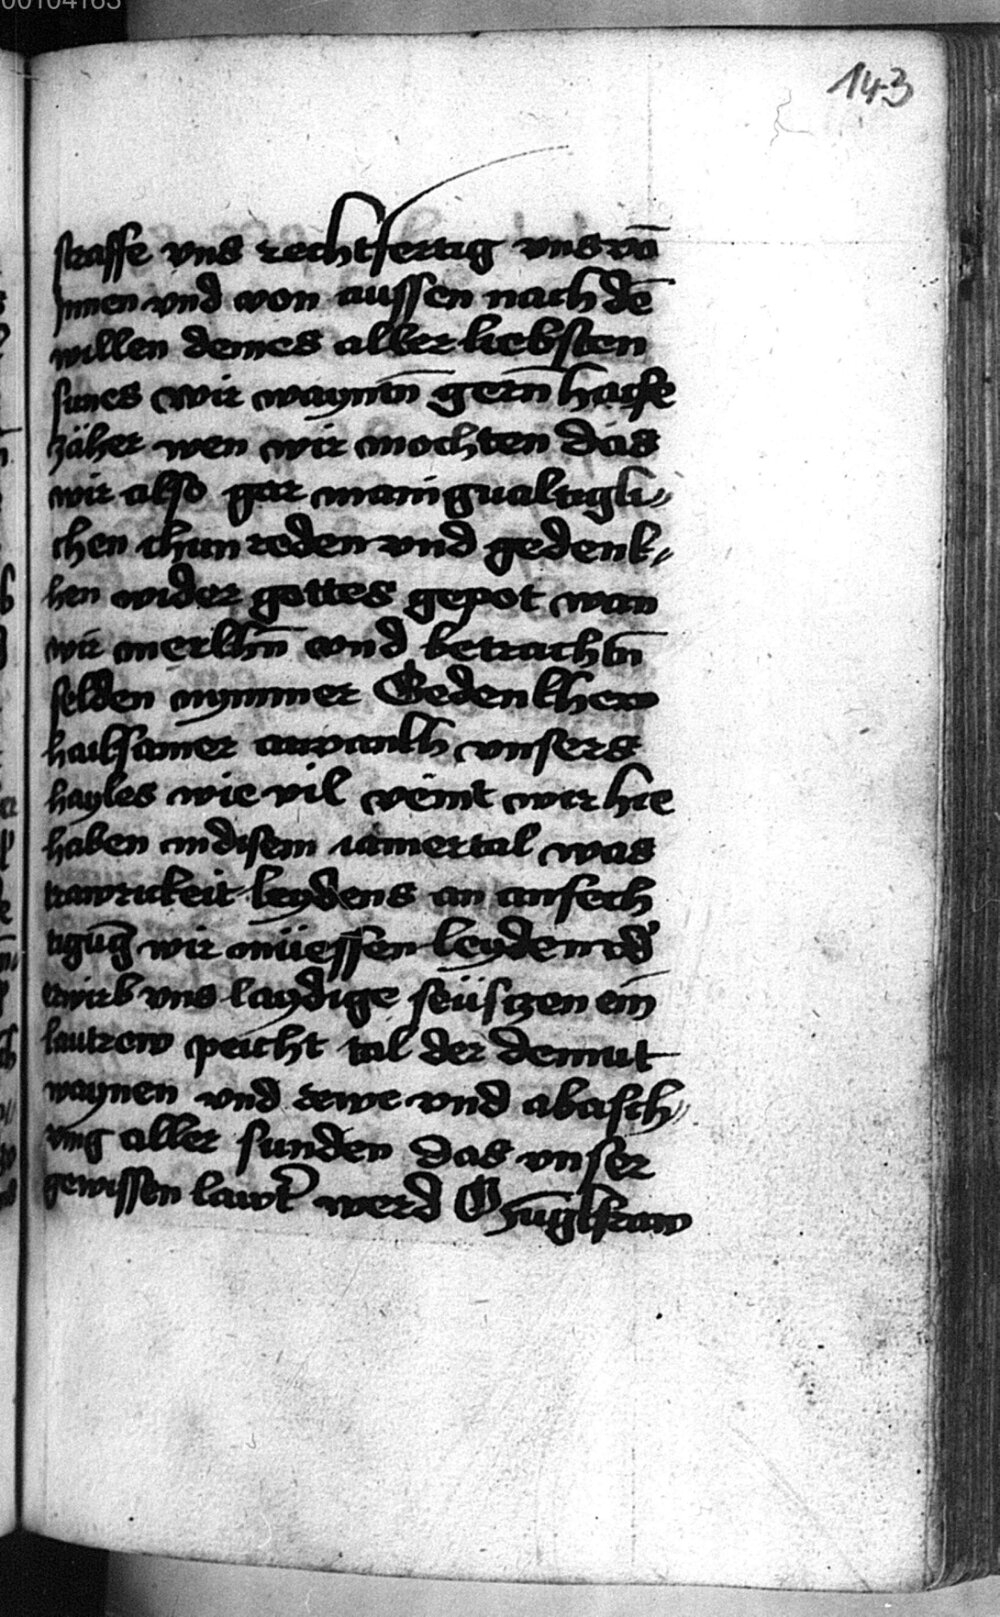 00104163
143
straffe vns rechtfertig vns vō
Jnnen vnd von aussen nach dē
willen deines aller liebsten
sunes wir wayntn̄ gern̄ haise
zäher wen wir mochten das
wir also gar manigualtigli⸗
chen thun reden vnd gedenk⸗
hen wider gottes gepot wan
wir merkhn̄ vnd betrachtn̄
selden nymmer Gedenkh ew
hailsamer vnsers
hayles wie vil veint wir hie
haben in disem iamertal was
trawrickeit leydens an anfech
tigūg wir müessen leyden vd'
erwirb vns laydige seüfczen ein
lautrew peicht tal der demut
waynen vnd rewe vnd abasch⸗
ung aller sunden das vnser
gewissen lawt' werd O Junkfraw